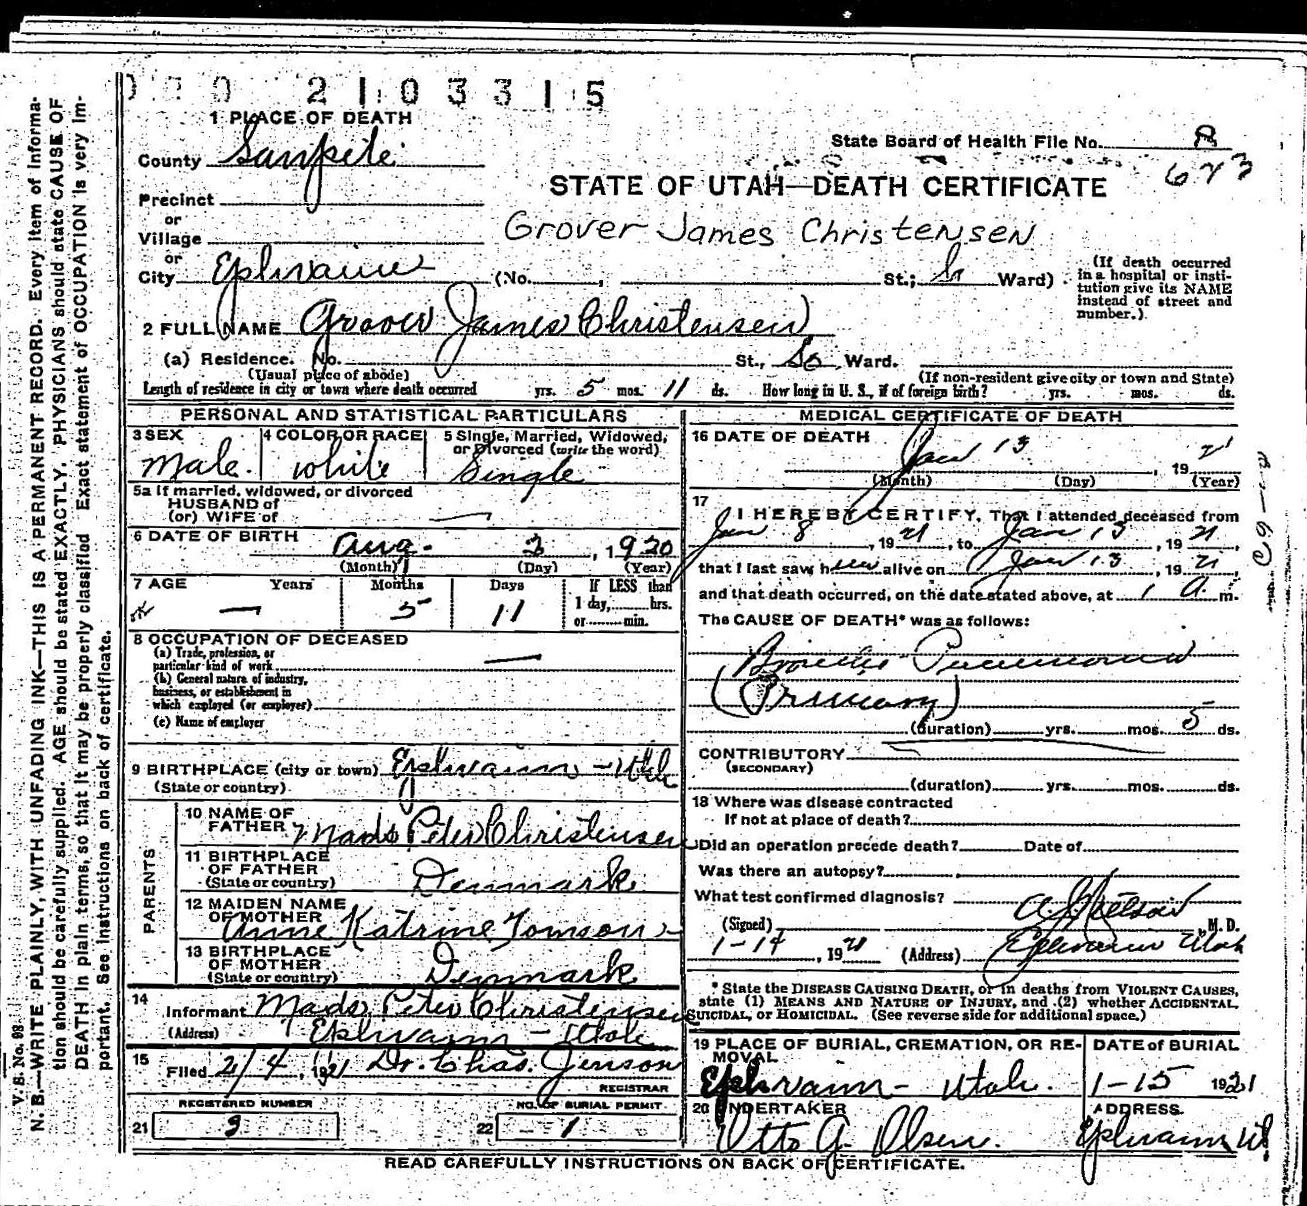 2103315
1 PLACE OF DEATH
County Sanpete
State Board of Health File No. 8
623
STATE OF UTAH—DEATH CERTIFICATE
Precinct
or
Village
Grover James Christensen
or
City Ephraim (No. , St.; So Ward)
(If death occurred in a hospital or institution give its NAME instead of street and number.)
2 FULL NAME Grover James Christensen
(a) Residence. No. St., So. Ward.
(Usual place of abode) (If non-resident give city or town and State)
Length of residence in city or town where death occurred yrs. 5 mos. 11 ds. How long in U. S., if of foreign birth? yrs. mos. ds.
PERSONAL AND STATISTICAL PARTICULARS
3 SEX 4 COLOR OR RACE 5 Single, Married, Widowed, or Divorced (write the word)
Male. white Single
5a If married, widowed, or divorced
HUSBAND of
(or) WIFE of —
6 DATE OF BIRTH Aug. 2, 1920
(Month) (Day) (Year)
7 AGE Years Months Days If LESS than
1 day, hrs.
or min.
— 5 11
8 OCCUPATION OF DECEASED
(a) Trade, profession, or
particular kind of work —
(b) General nature of industry,
business, or establishment in
which employed (or employer)
(c) Name of employer
9 BIRTHPLACE (city or town) Ephraim - Utah
(State or country)
PARENTS
10 NAME OF
FATHER Mads Peter Christensen
11 BIRTHPLACE
OF FATHER
(State or country) Denmark
12 MAIDEN NAME
OF MOTHER Anne Katrine Tomson
13 BIRTHPLACE
OF MOTHER
(State or country) Denmark
14
Informant Mads Peter Christensen
(Address) Ephraim - Utah
15
Filed 2/4, 1921 Dr. Chas. Jenson
REGISTRAR
REGISTERED NUMBER NO. OF BURIAL PERMIT
21 3 22 1
MEDICAL CERTIFICATE OF DEATH
16 DATE OF DEATH Jan 13, 1921
(Month) (Day) (Year)
17
I HEREBY CERTIFY, That I attended deceased from
Jan 8, 1921, to Jan 13, 1921,
that I last saw him alive on Jan 13, 1921,
and that death occurred, on the date stated above, at 1 A. m.
The CAUSE OF DEATH* was as follows:
Broncho Pneumonia
(Primary)
(duration) yrs. mos. 5 ds.
CONTRIBUTORY
(SECONDARY)
(duration) yrs. mos. ds.
18 Where was disease contracted
If not at place of death?
Did an operation precede death? Date of
Was there an autopsy?
What test confirmed diagnosis?
(Signed) M. D.
1-14, 1921 (Address) Ephraim Utah
* State the DISEASE CAUSING DEATH, or in deaths from VIOLENT CAUSES,
state (1) MEANS AND NATURE OF INJURY, and (2) whether ACCIDENTAL,
SUICIDAL, OR HOMICIDAL. (See reverse side for additional space.)
19 PLACE OF BURIAL, CREMATION, OR REMOVAL DATE of BURIAL
Ephraim - Utah. 1-15 1921
20 UNDERTAKER ADDRESS.
Otto A. Olsen. Ephraim Ut.
READ CAREFULLY INSTRUCTIONS ON BACK OF CERTIFICATE.
V. S. No. 98
N. B.—WRITE PLAINLY, WITH UNFADING INK—THIS IS A PERMANENT RECORD. Every item of informa-
tion should be carefully supplied. AGE should be stated EXACTLY. PHYSICIANS should state CAUSE OF
DEATH in plain terms, so that it may be properly classified. Exact statement of OCCUPATION is very im-
portant. See instructions on back of certificate.